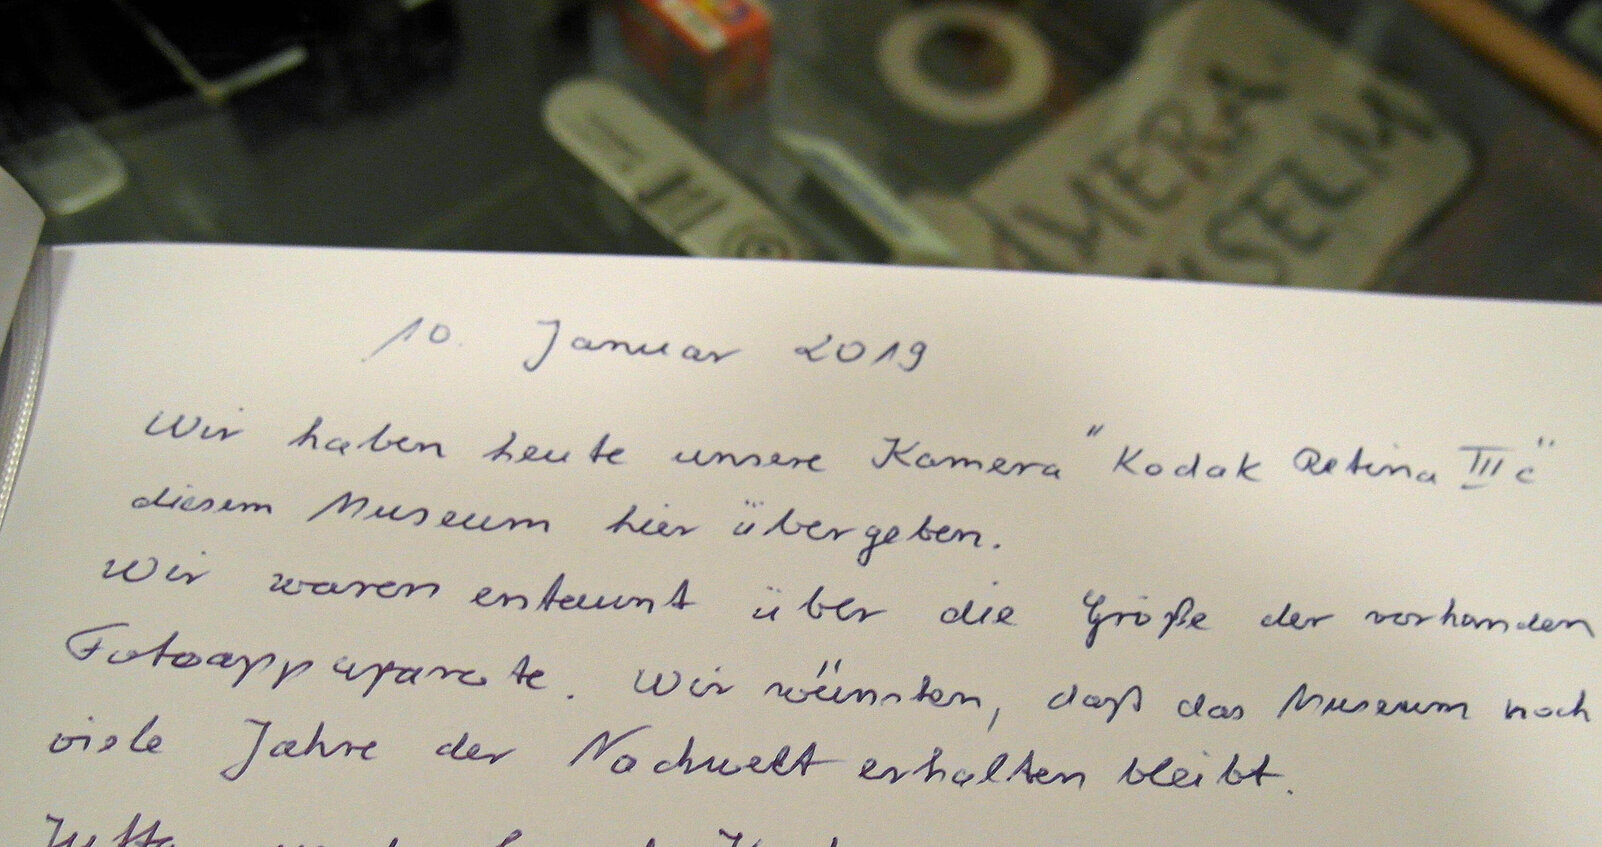 MERA
SELM
10. Januar 2019
Wir haben heute unsere Kamera "Kodak Retina IIIc"
diesem Museum hier übergeben.
Wir waren erstaunt über die Größe der vorhanden
Fotoapparate. Wir wünschen, daß das Museum noch
viele Jahre der Nachwelt erhalten bleibt.
Jutta